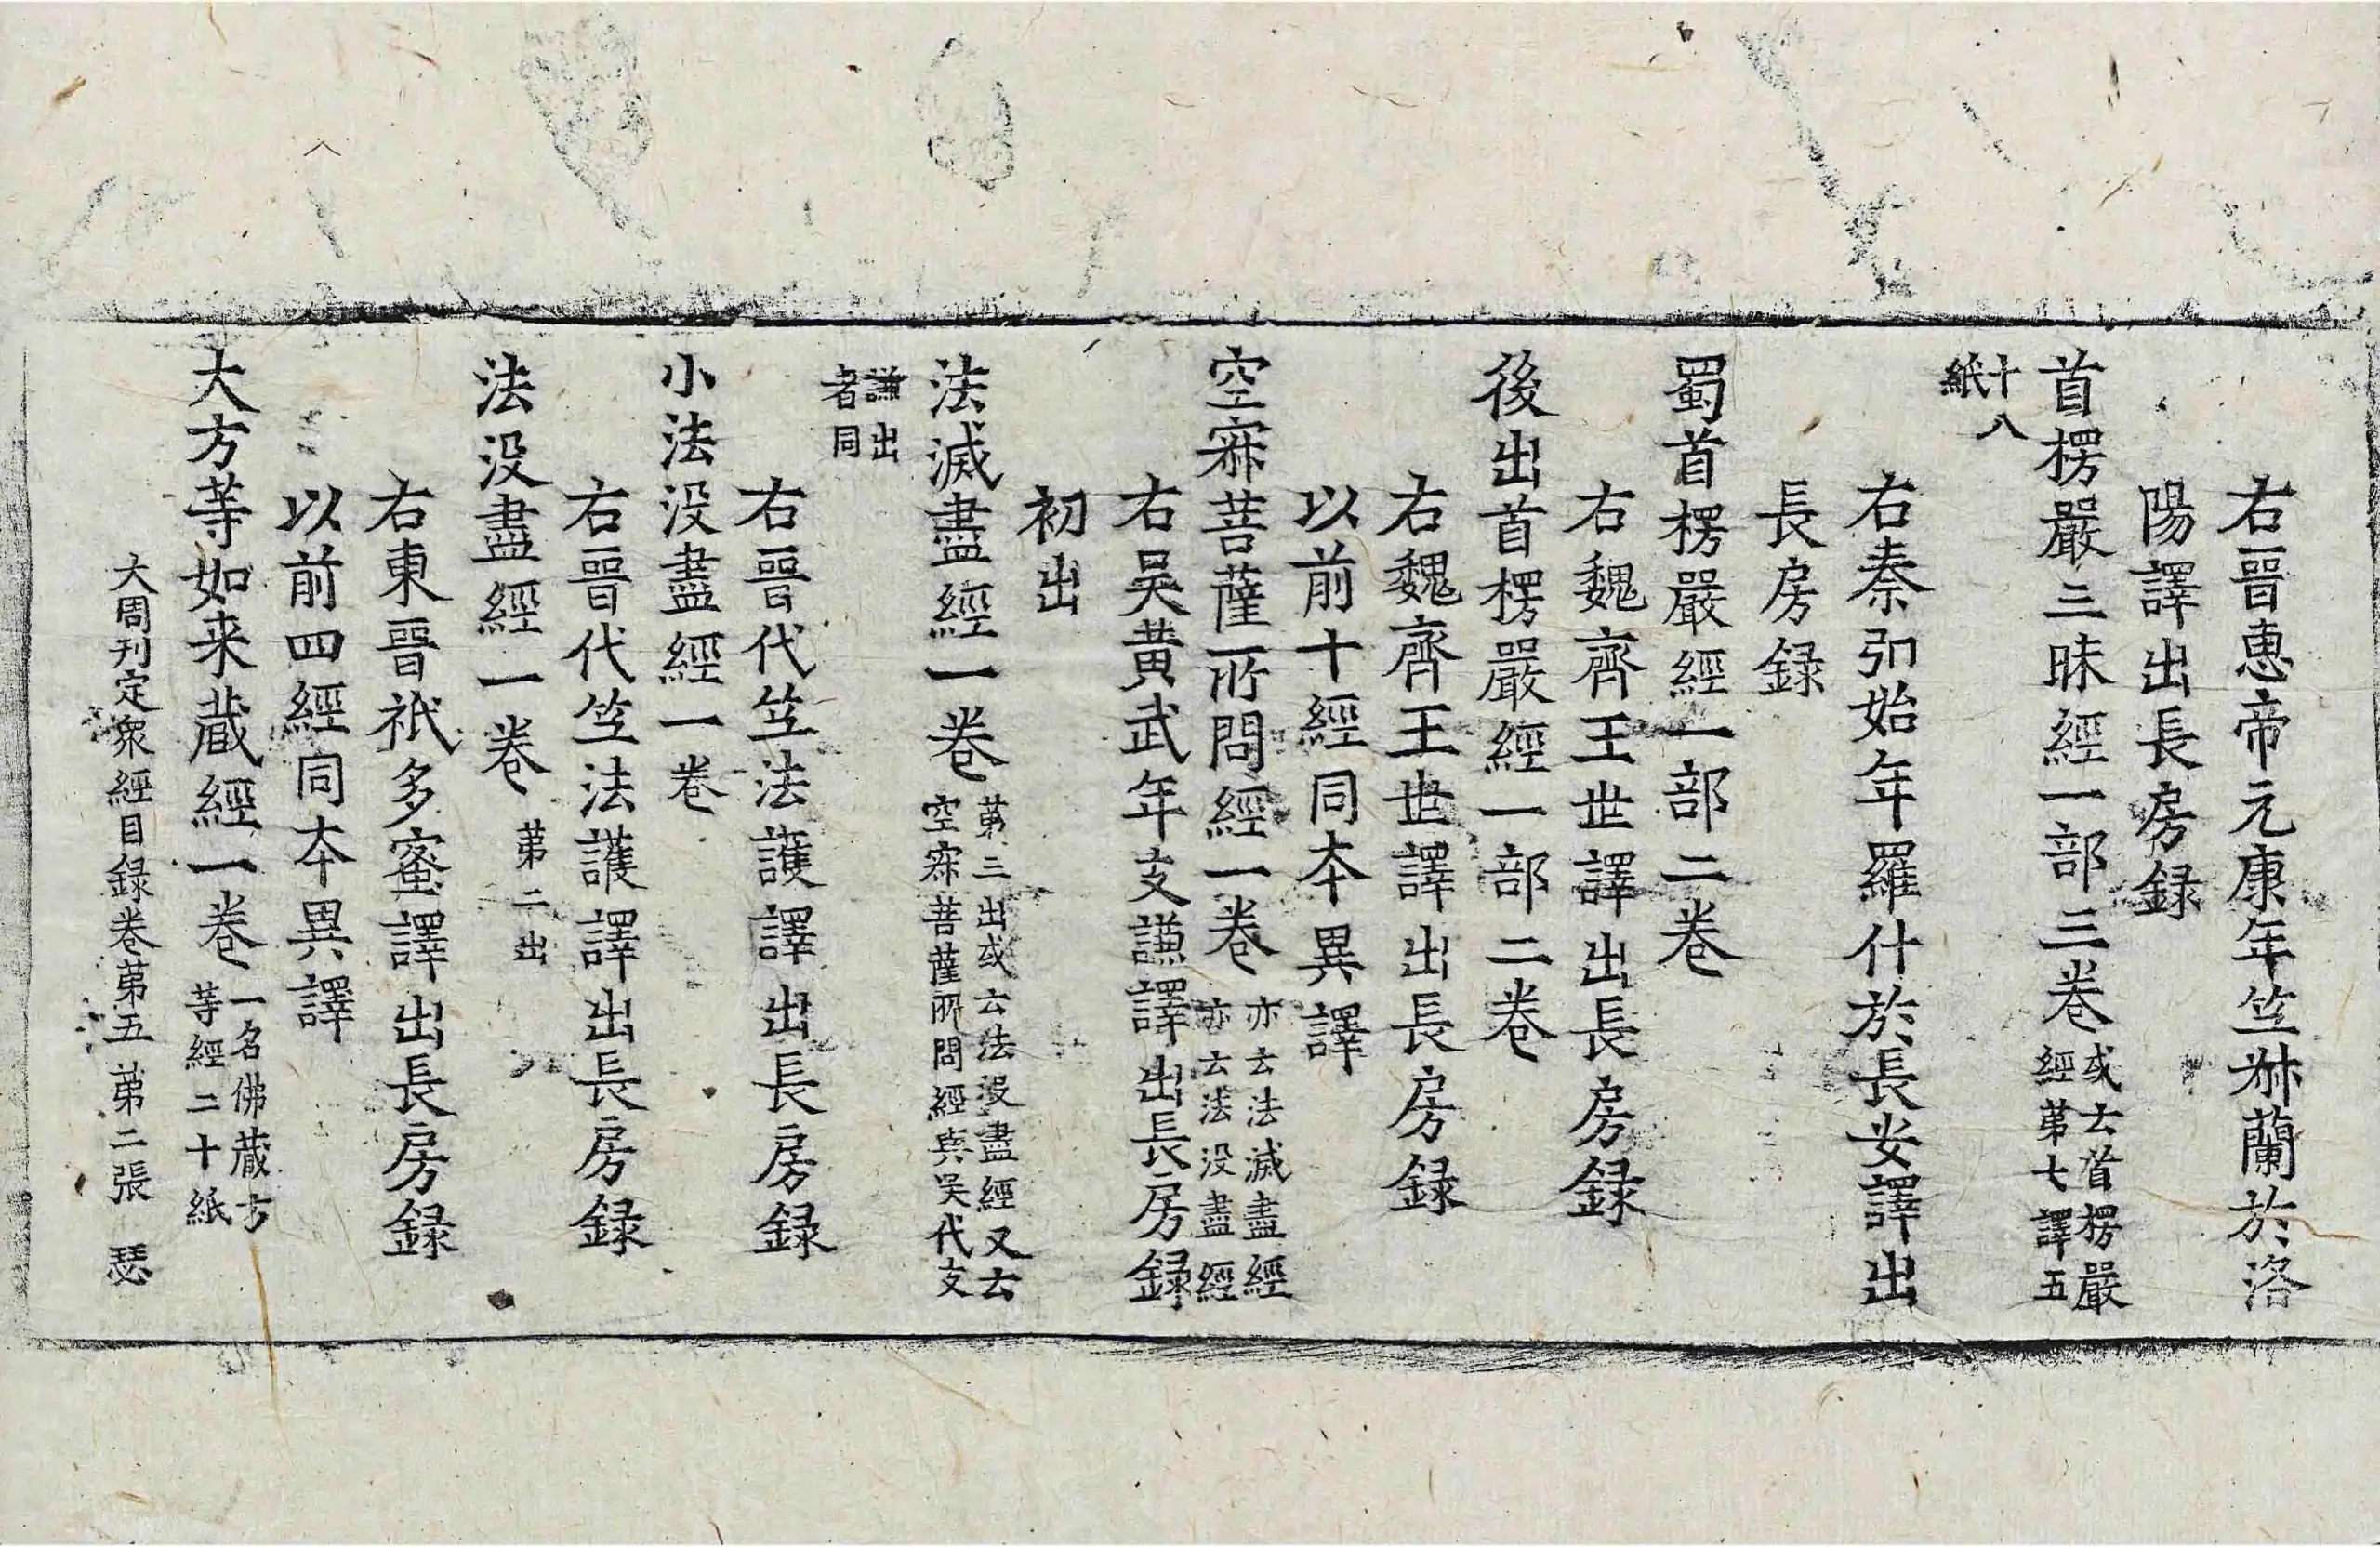 右晉惠帝元康年竺𠦑蘭於洛
陽譯出長房録
首楞嚴三昧經一部三卷
或云首楞嚴
經苐七譯五
十八
紙
右秦弘始年羅什於長安譯出
長房録
蜀首楞嚴經一部二卷
右魏齊王世譯出長房録
後出首楞嚴經一部二卷
右魏齊王世譯出長房録
以前十經同夲異譯
空寂菩薩所問經一卷
亦云法滅盡經
亦云法没盡經
右吴黄武年支謙譯出長房録
初出
法滅盡經一卷
苐三出或云法没盡經又云
空寂菩薩所問經與吴代支
謙出
者同
右晉代竺法護譯出長房録
小法没盡經一卷
右晉代竺法護譯出長房録
法没盡經一卷
苐二出
右東晉祇多蜜譯出長房録
以前四經同夲異譯
大方等如来蔵經一卷
一名佛蔵方
等經二十紙
大周刊定衆經目録卷苐五 苐二張 瑟